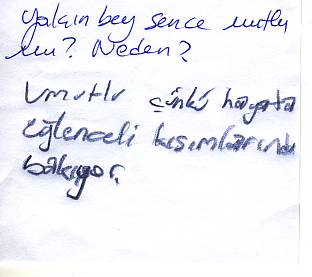 Yalçın bey sence mutlu
mu? Neden?
Umutlu çünkü hayata
Eğlenceli kısımlarında
bakıyor.